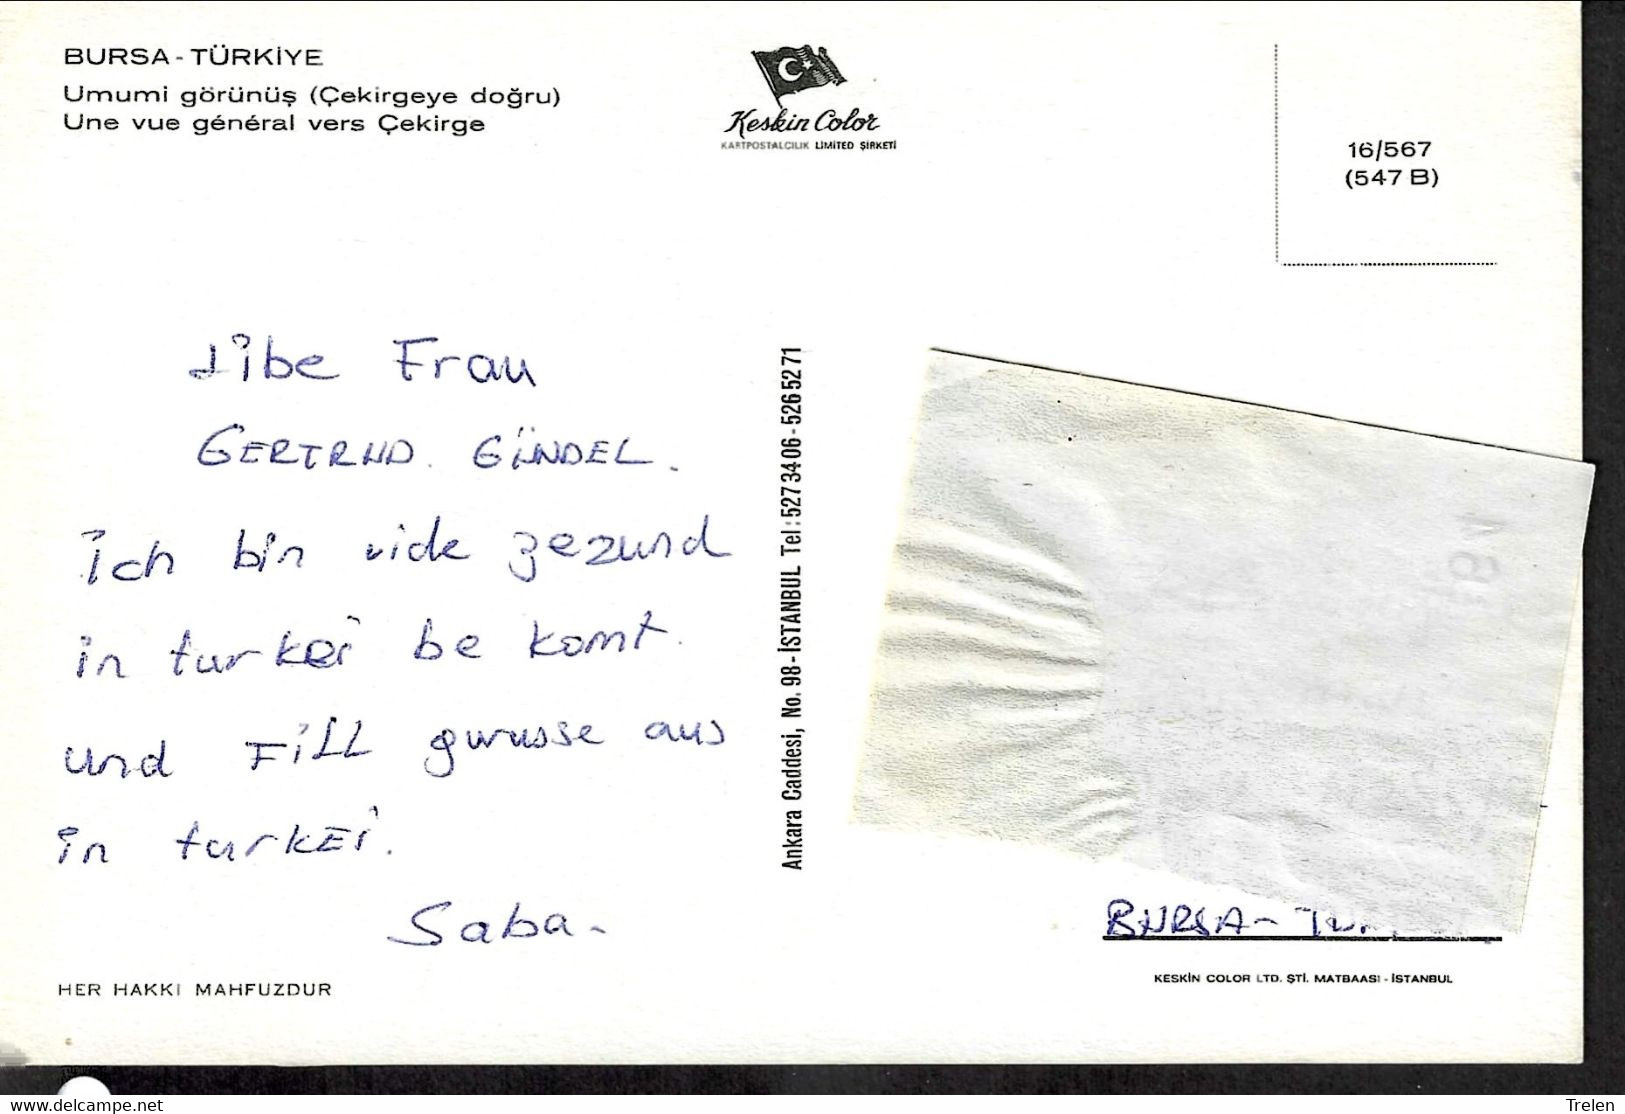 BURSA - TÜRKİYE
Umumi görünüş (Çekirgeye doğru)
Une vue général vers Çekirge
Keskin Color
KARTPOSTALCILIK LIMITED ŞİRKETİ
16/567
(547 B)
Libe Frau
GERTRUD. GÜNDEL.
ich bin vide gezund
in turkei be komt.
und FiLL gurusse aus
in turkEi.
Saba.
HER HAKKI MAHFUZDUR
Ankara Caddesi, No. 98 - İSTANBUL Tel: 527 34 06 - 526 52 71
BURSA -
KESKİN COLOR LTD. ŞTİ. MATBAASI - İSTANBUL
www.delcampe.net
Trelen